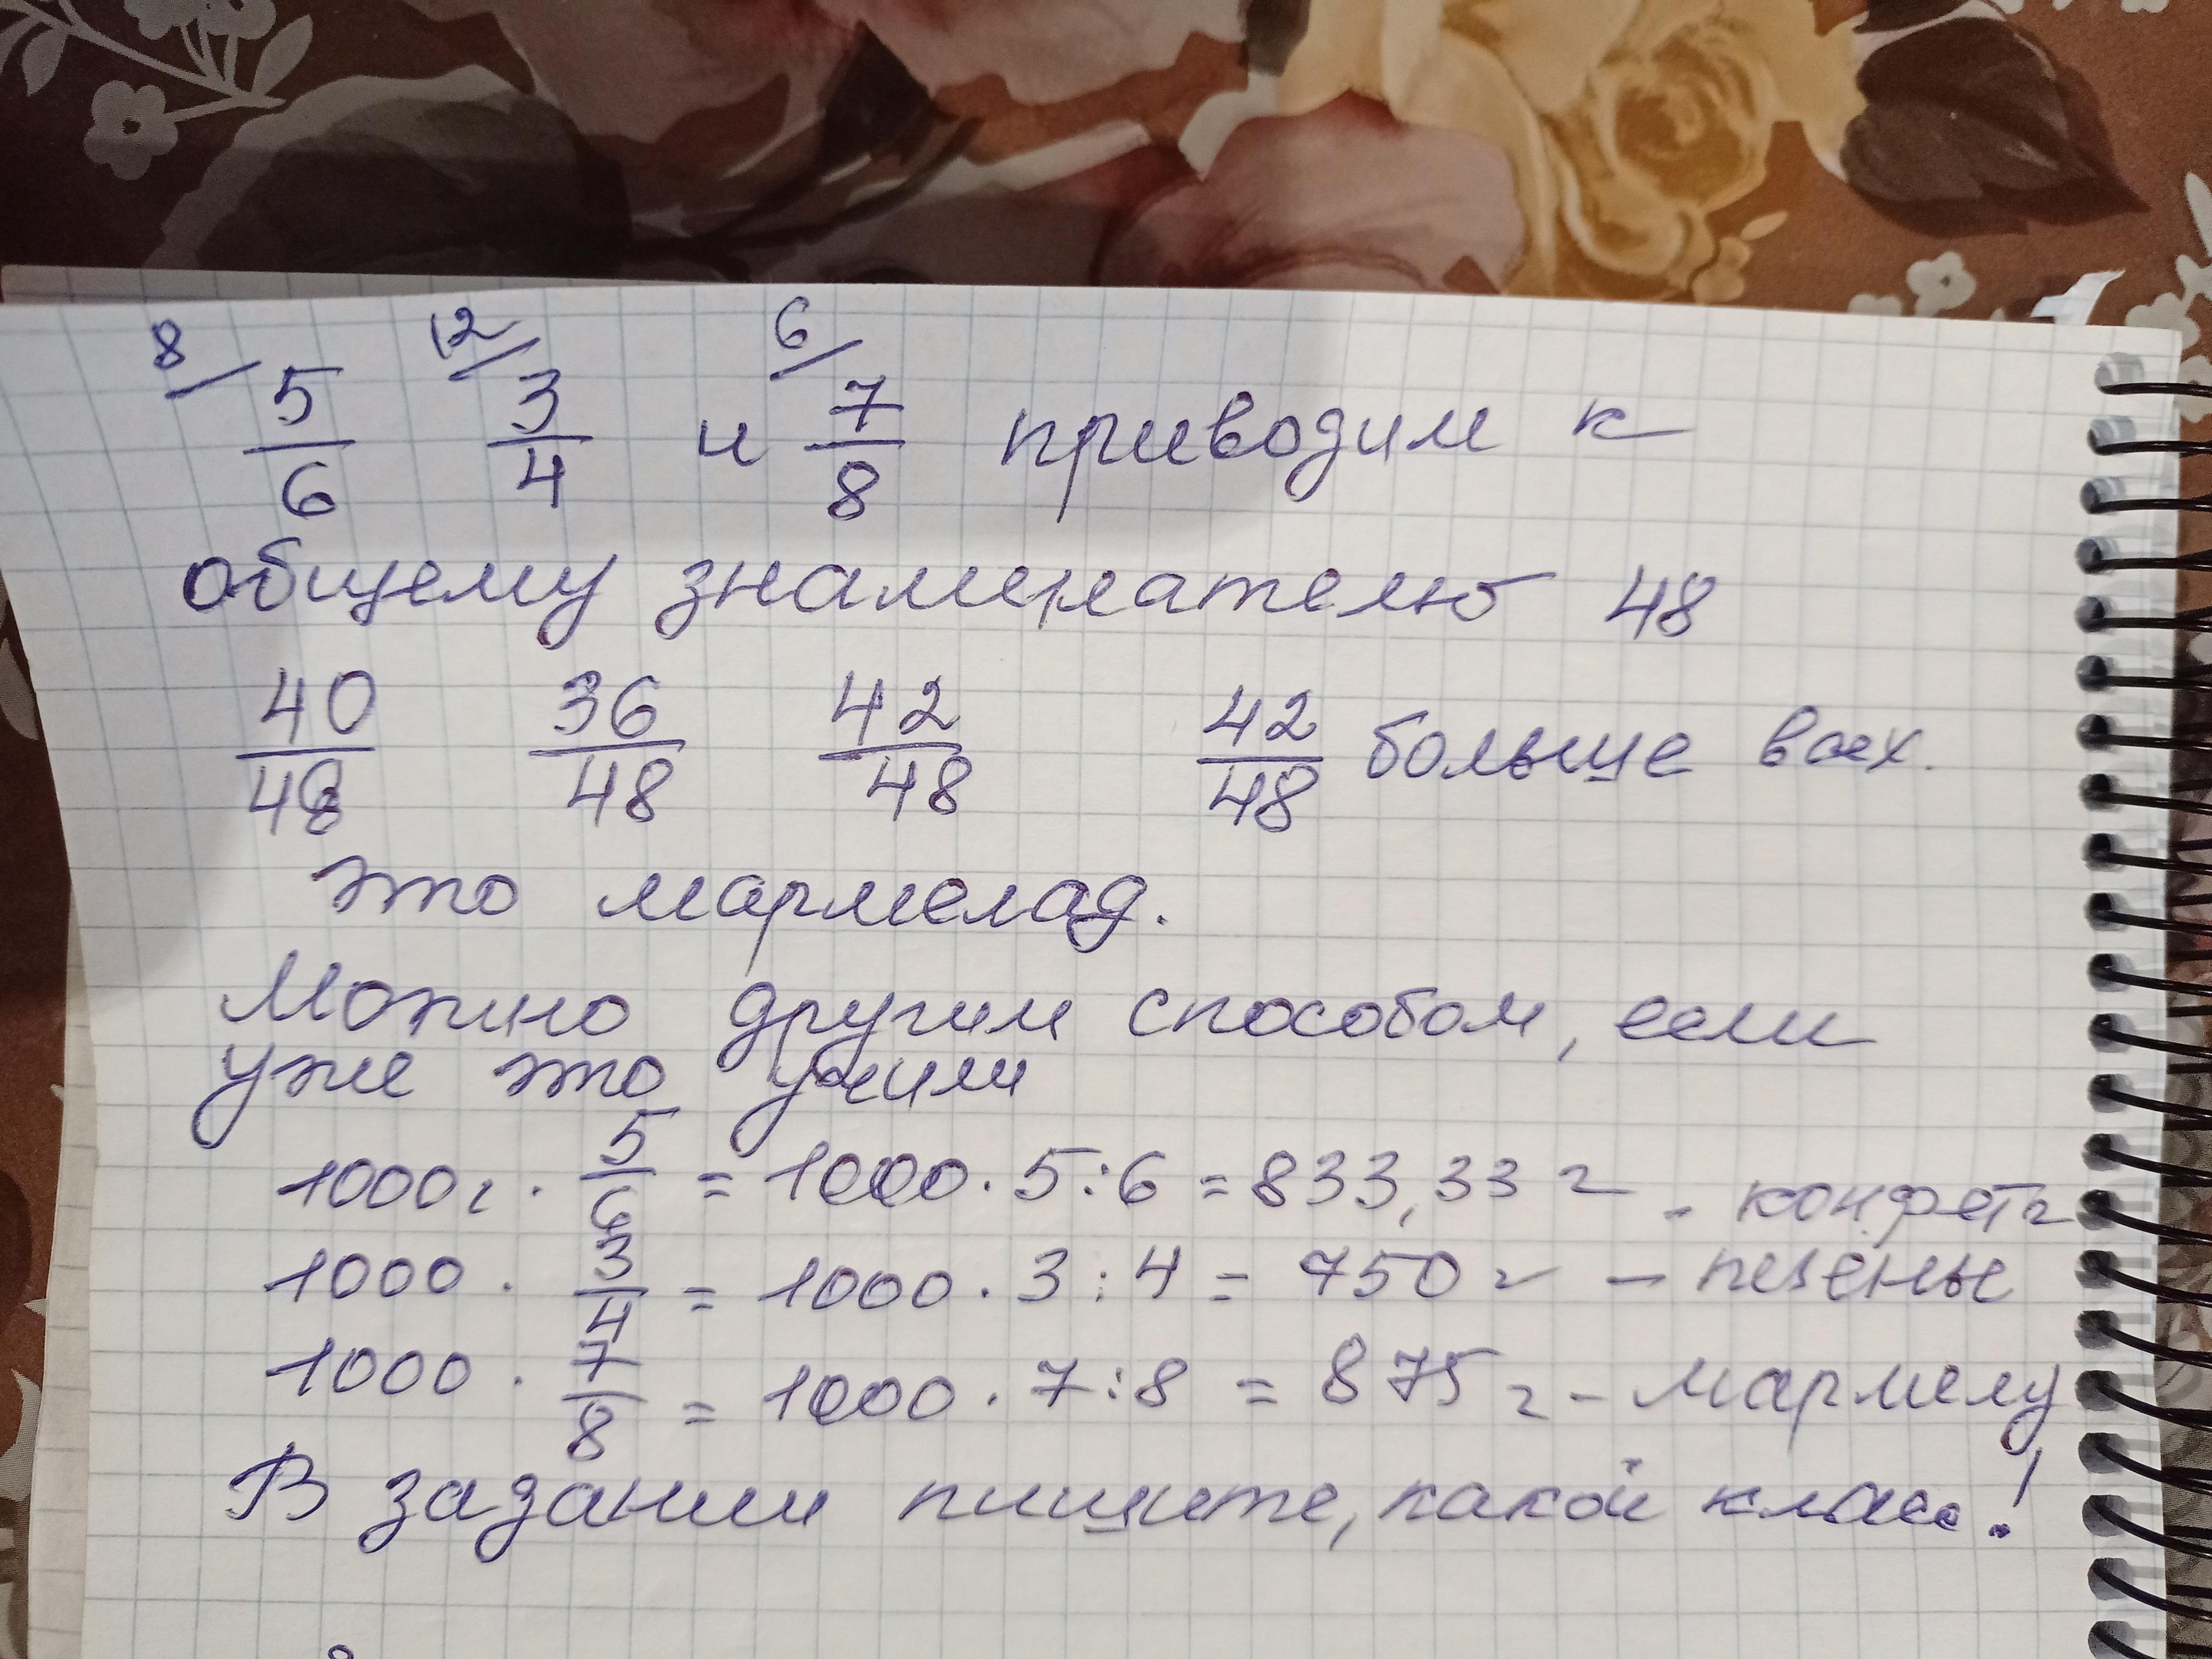 8/ 12/ 6/
5/6 3/4 и 7/8 приводим к
общему знаменателю 48
40/48 36/48 42/48 42/48 больше всех.
это мармелад.
Можно другим способом, если
уже это учили
1000г · 5/6 = 1000 · 5:6 = 833,33 г - конфеты
1000 · 3/4 = 1000 · 3:4 = 750 г – печенье
1000 · 7/8 = 1000 · 7:8 = 875 г - мармелад
В задании пишите, какой класс!